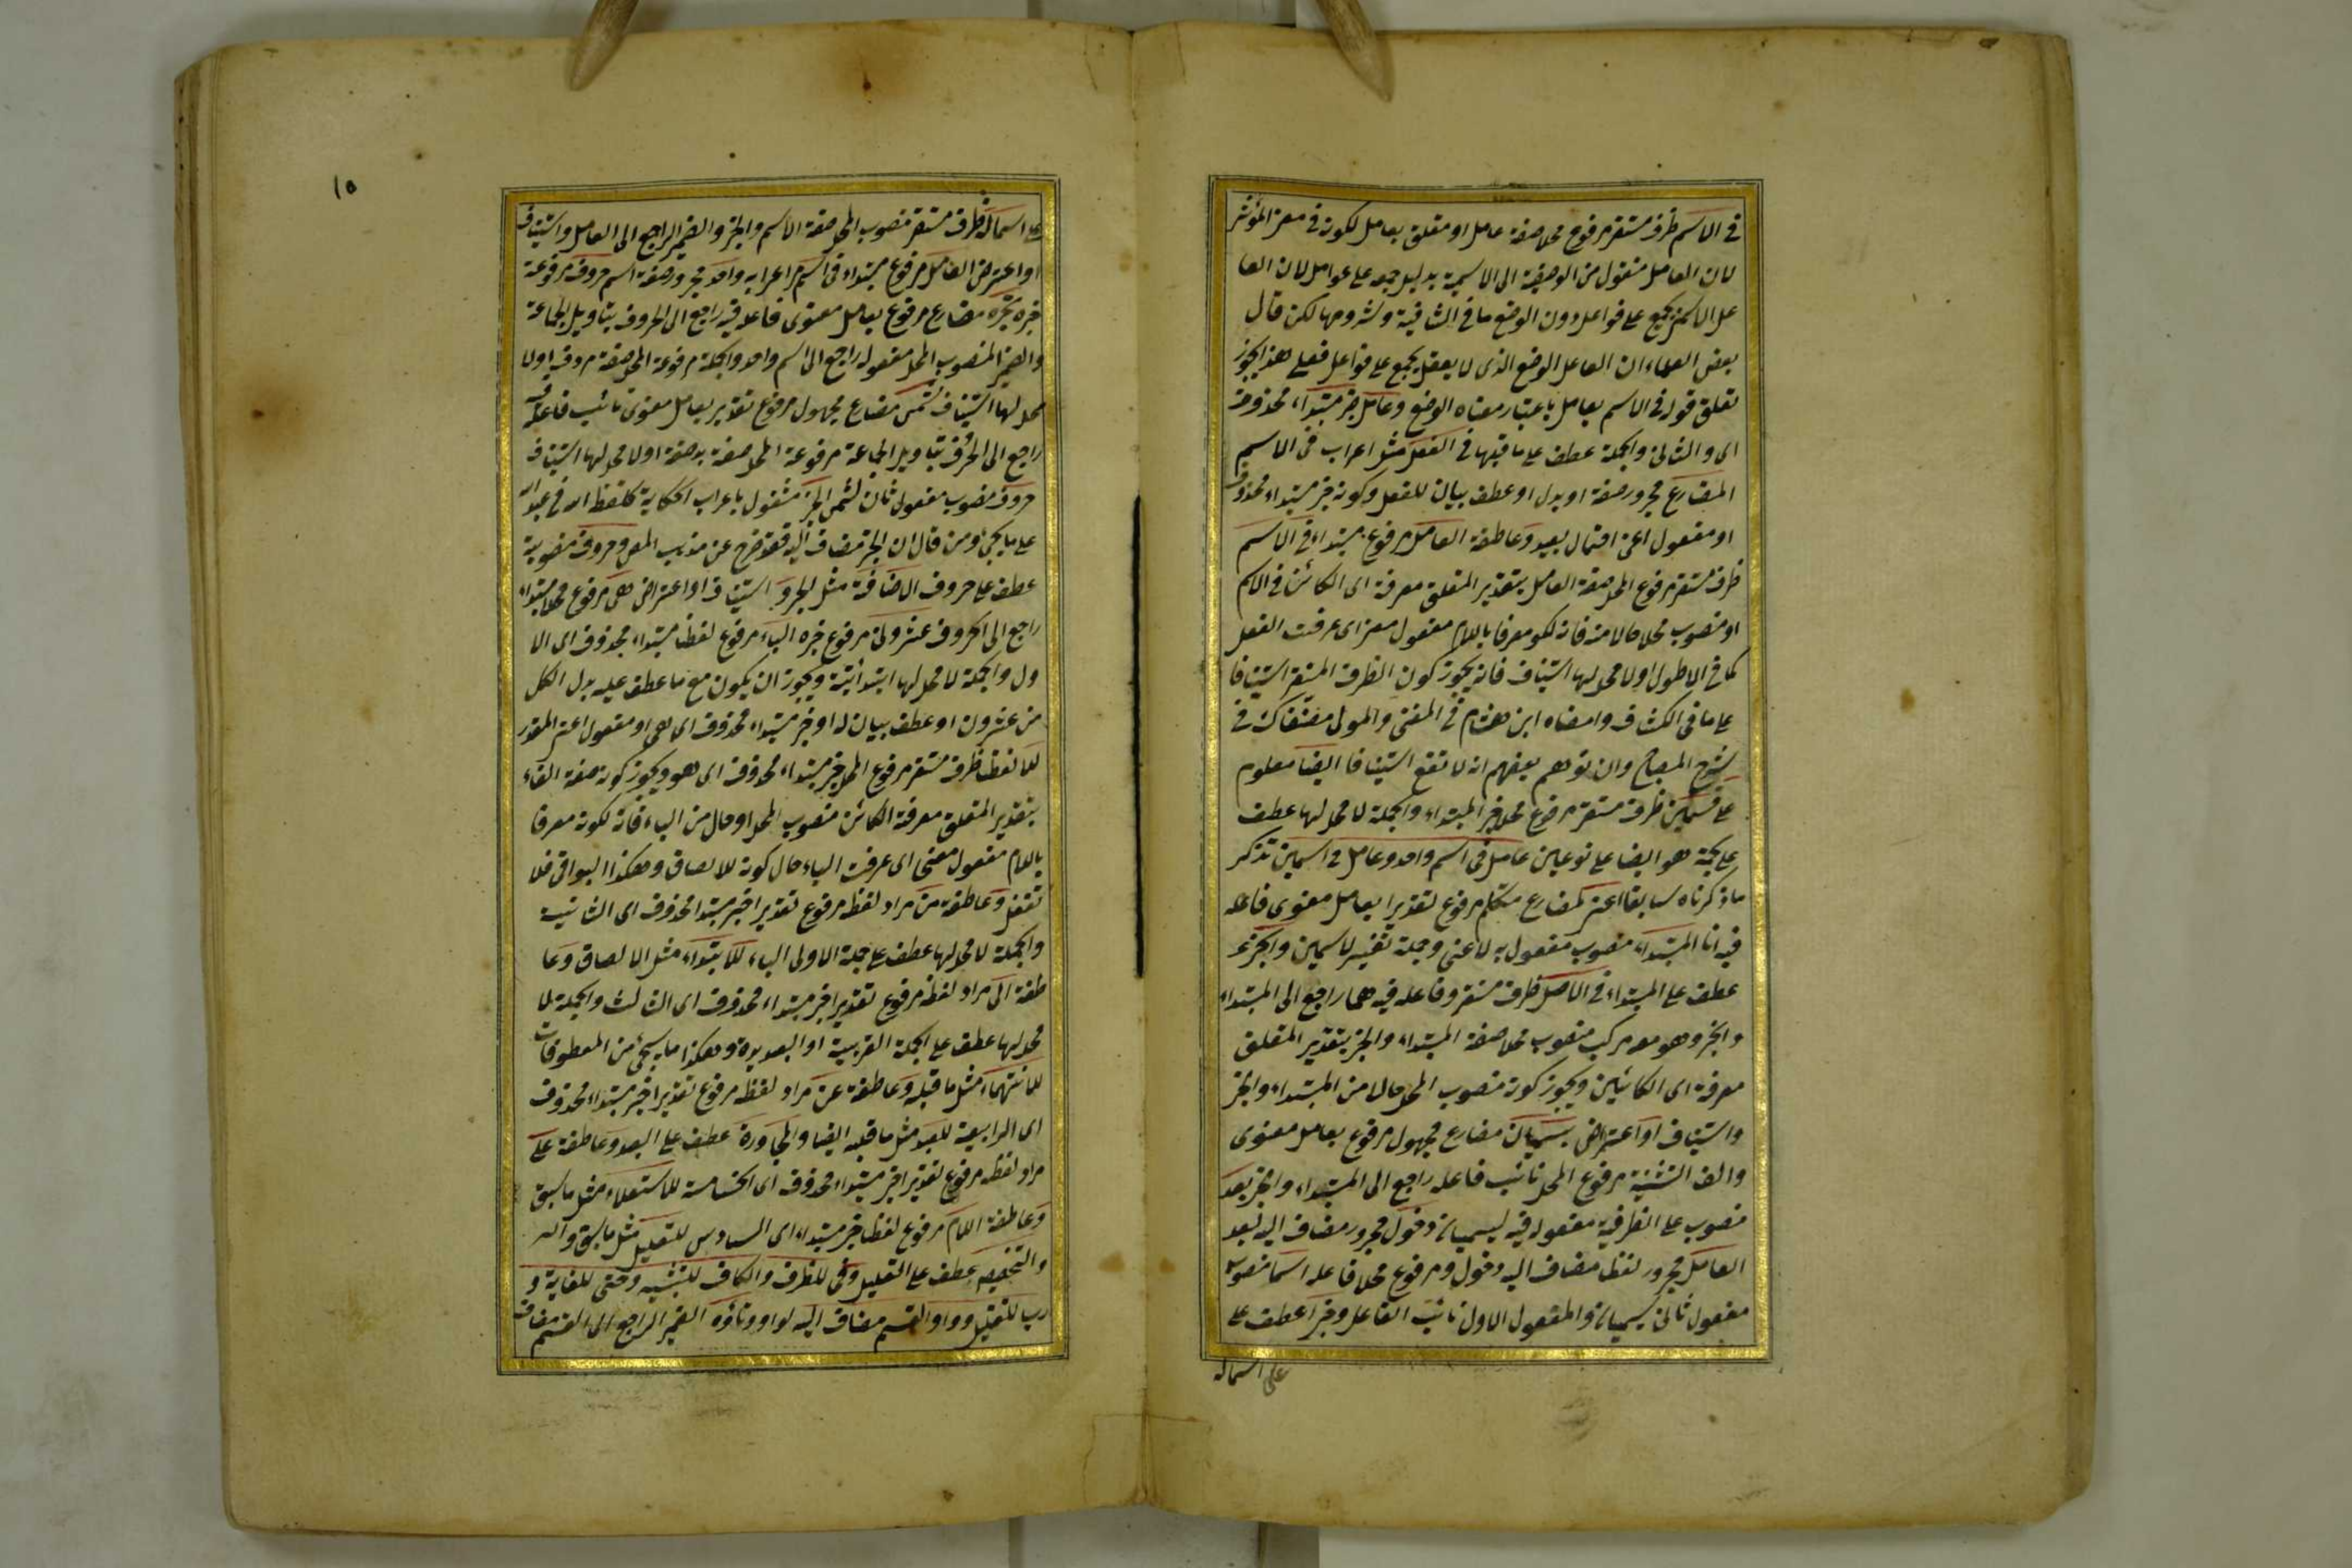 فى الاسم ظرف مستقر مرفوع محلا صفة عامل او متعلق بعامل لكونه فى معنى المؤثر
لان العامل منقول من الوصفية الى الاسمية بدليل جمعه على عوامل لان الفا
عل الاسمى يجمع على فواعل دون الوضع ما فى الشافية وشروحها لكن قال
بعض العلماء ان الفاعل الوضع الذى لا يعقل يجمع على فواعل فعلى هذا يجوز
تعلق قوله فى الاسم بعامل باعتبار معناه الوضع وعامل خبر مبتداء محذوف
اى والثانى والجملة عطف على ما قبلها فى الفعل مثل اعراب فى الاسم
المضارع مجرور صفة او بدل او عطف بيان للفعل وكونه خبر مبتداء محذوف
او مفعول اعنى احتمال بعيد وعاطفة العامل مرفوع مبتداء فى الاسم
ظرف مستقر مرفوع المحل صفة العامل بتقدير المتعلق معرفة اى الكائن فى الاسم
او منصوب محلا حالا منه فانه لكونه معرفا باللام مفعول معنى اى عرفت الفعل
كما فى الاطول اولا محل لها استيناف فانه يجوز كون الظرف المستقر استينافا
على ما فى الكشاف وامضاه ابن هشام فى المغنى والمولى فى
شرح المصباح وان توهم بعضهم انه لا تقع استينافا ايضا معلوم
على قسمين ظرف مستقر مرفوع محلا خبر المبتداء والجملة لا محل لها عطف
على جملة هو ايضا على نوعين عامل فى اسم واحد وعامل فى اسمين تذكر
ما ذكرناه سابقا اعنى مضارع متكلم مرفوع تقديرا بعامل معنوى فاعله
فيه انا المبتداء منصوب مفعول به لاعنى وجملة تفسير لاسمين والخبر
عطف على المبتداء فى الاصل ظرف مستقر وفاعله فيه هما راجع الى المبتداء
والخبر وهو معه مركب منصوب محلا صفة المبتداء والخبر بتقدير المتعلق
معرفة اى الكائنين ويجوز كونه منصوب المحل حالا من المبتداء والخبر
واستيناف او اعتراض يسميان مضارع مجهول مرفوع بعامل معنوى
والف التثنية مرفوع المحل نائب فاعله راجع الى المبتداء والخبر بعد
منصوب على الظرفية مفعول فيه ليسميان دخول مجرور مضاف اليه لبعد
العامل مجرور لفظا مضاف اليه دخول ومرفوع محلا فاعله اسما منصوب
مفعول ثانى ليسميان والمفعول الاول نائب الفاعل وخبرا عطف على
على اسماله
١٥
على اسماله ظرف مستقر منصوب المحل صفة الاسم والخبر والضمير الراجع الى العامل واستيناف
او اعتراض العامل مرفوع مبتداء فى اسم مر اعرابه واحد مجرور صفة اسم حروف مرفوعة
خبره تجره مضارع مرفوع بعامل معنوى فاعله فيه راجع الى الحروف بتاويل الجماعة
والضمير المنصوب المحل مفعوله راجع الى اسم واحد والجملة مرفوعة المحل صفة حروف اولا
محل لها استيناف تسمى مضارع مجهول مرفوع تقدير بعامل معنوى نائب فاعله فيه
راجع الى الحروف بتاويل الجماعة مرفوعة المحل صفة بعد صفة اولا محل لها استيناف
حروف منصوب مفعول ثان لتسمى الجر مشغول باعراب الحكاية كلفظ الله فى عبد الله
على ما يجئ ومن قال ان الجر مضاف اليه فقد خرج عن مذهب المص وحروف منصوبة
عطف على حروف الاضافة مثل الجر و استيناف او اعتراض هى مرفوع محلا مبتداء
راجع الى الحروف عشرون مرفوع خبره الباء مرفوع لفظا مبتداء محذوف اى الا
ول والجملة لا محل لها ابتدائية ويجوز ان يكون مع ما عطف عليه بدل الكل
من عشرون او عطف بيان له او خبر مبتداء محذوف اى هى او مفعول اعنى المقدر
للالصاق ظرف مستقر مرفوع المحل خبر مبتداء محذوف اى هو ويجوز كونه صفة الباء
بتقدير المتعلق معرفة الكائن منصوب المحل او حال من الباء فانه لكونه معرفا
باللام مفعول معنى اى عرفت الباء حال كونه للالصاق وهكذا البواقى فلا
تغفل وعاطفة من مراد لفظه مرفوع تقديرا خبر مبتدا محذوف اى الثانية
والجملة لا محل لها عطف على جملة الاولى الباء للابتداء مثل الالصاق وعا
طفة الى مراد لفظه مرفوع تقديرا خبر مبتداء محذوف اى الثالث والجملة لا
محل لها عطف على الجملة القريبة او البعيدة وهكذا ما سيجئ من المعطوفات
للانتهاء مثل ما قبله وعاطفة عن مراد لفظه مرفوع تقديرا خبر مبتداء محذوف
اى الرابعة للبعد مثل ما قبله ايضا والمجاورة عطف على البعد وعاطفة على
مراد لفظه مرفوع تقديرا خبر مبتداء محذوف اى الخامسة للاستعلاء مثل ما سبق
وعاطفة اللام مرفوع لفظا خبر مبتداء اى السادس للتعليل مثل ما سبق
والتخصيص عطف على التعليل وفى للظرف والكاف للتشبيه وحتى للغاية و
رب للتقليل وواو القسم مضاف اليه لواو وتاؤه الضمير الراجع الى القسم مضاف